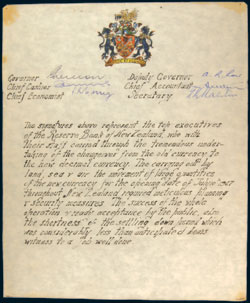 Governor Deputy Governor
Chief Cashier Chief Accountant
Chief Economist Secretary
The signatures above represent the top executives
of the Reserve Bank of New Zealand, who with
their staff carried through the tremendous under-
taking of the changeover from the old currency to
the new decimal currency. The carrying out by
land, sea & air the movement of large quantities
of the new currency for the opening date of July
throughout New Zealand required meticulous planning
& security measures. The success of the whole
operation & ready acceptance by the public, also
the shortness of the settling down period which
was considerably less than anticipated bears
witness to a job well done